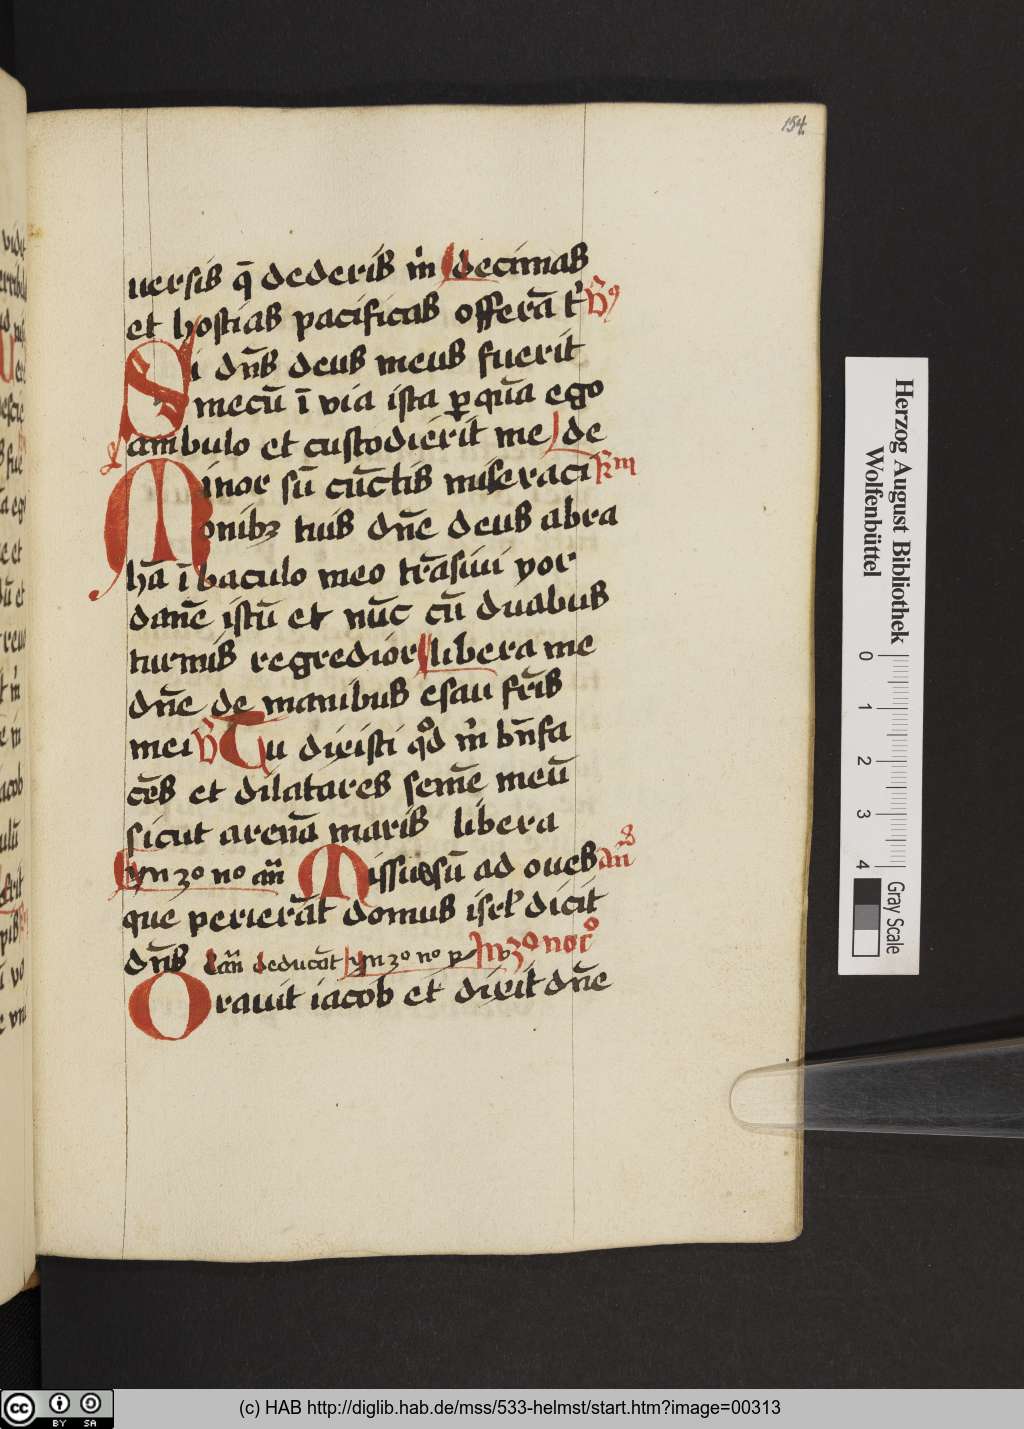 154
uersis q̄ dederis m̄ decimas
et hostias pacificas offerā t' v̄s
Si dn̄s deus meus fuerit
mecū ī via ista per quā ego
ambulo et custodierit me de
Minor sū cūctis miseraci
onibꝫ tuis dn̄e deus abra
hā ī baculo meo trāsiui yor
danē istū et nūc cū duabus
turmis regredior libera me
dn̄e de manibus esau fr̄is
mei v̄ Tu dixisti qd̊ m̄ bn̄fa
cēs et dilatares semē meū
sicut arenā maris libera
yn ꝫº nº an̄ Missus sū ad oues an̄
que perierāt domus isrl̄ dicit
dn̄s an̄ deducāt yn ꝫº nº p
Orauit iacob et dixit dn̄e
Herzog August Bibliothek
Wolfenbüttel
0 1 2 3 4
Gray Scale
(c) HAB http://diglib.hab.de/mss/533-helmst/start.htm?image=00313
cc BY SA